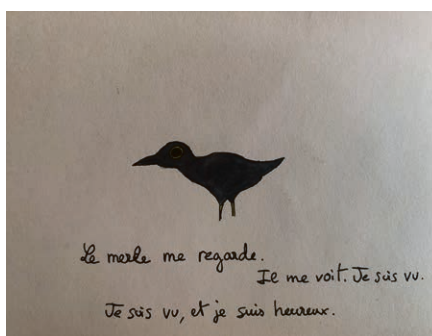 Le merle me regarde.
Il me voit. Je suis vu.
Je suis vu, et je suis heureux.